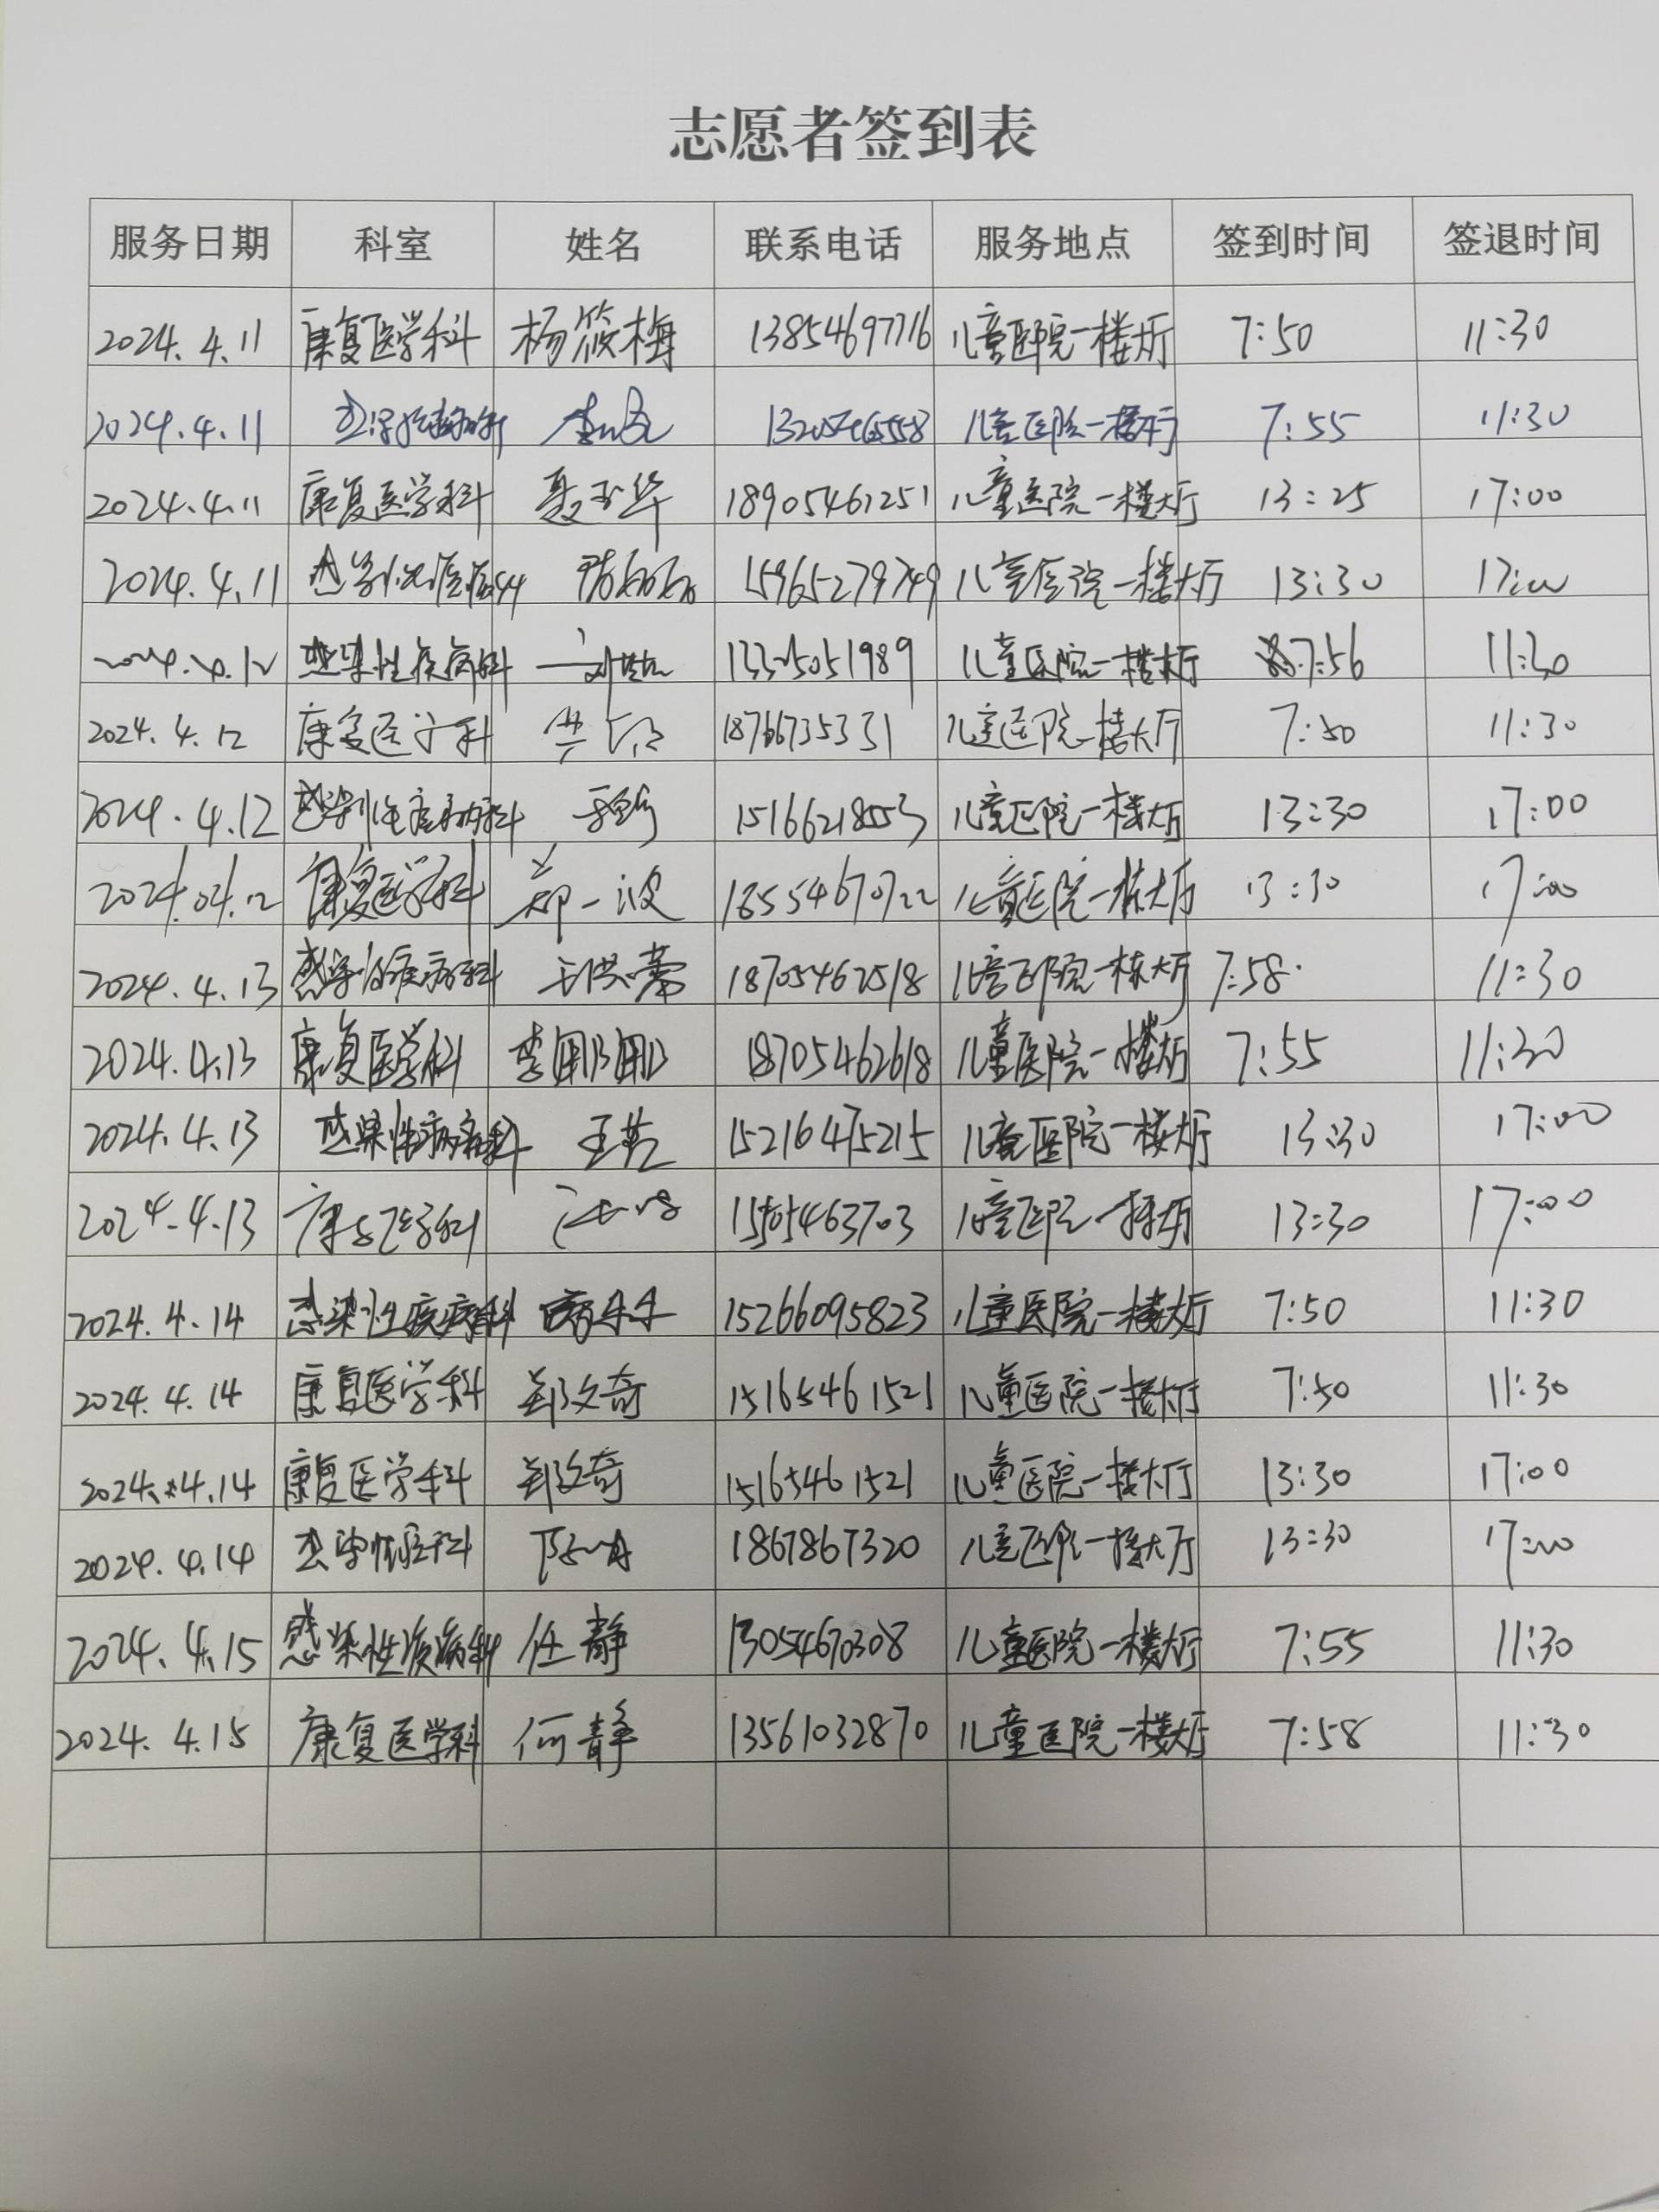 志愿者签到表
服务日期 科室 姓名 联系电话 服务地点 签到时间 签退时间
2024.4.11 康复医学科 杨筱梅 13854697716 儿童医院一楼大厅 7:50 11:30
2024.4.11 儿童医院一楼大厅 7:55 11:30
2024.4.11 康复医学科 聂玉华 18905461251 儿童医院一楼大厅 13:25 17:00
2024.4.11 15965279749 儿童医院一楼大厅 13:30 17:00
2024.4.12 感染性疾病科 儿童医院一楼大厅 7:56 11:30
2024.4.12 康复医学科 18766735351 儿童医院一楼大厅 7:50 11:30
2024.4.12 感染性疾病科 15166218553 儿童医院一楼大厅 13:30 17:00
2024.04.12 康复医学科 郑一波 儿童医院一楼大厅 13:30 17:00
2024.4.13 感染性疾病科 18705462518 儿童医院一楼大厅 7:58 11:30
2024.4.13 康复医学科 李 18705462618 儿童医院一楼大厅 7:55 11:30
2024.4.13 15216475215 儿童医院一楼大厅 13:30 17:00
2024.4.13 康复医学科 15505463703 儿童医院一楼大厅 13:30 17:00
2024.4.14 感染性疾病科 15266095823 儿童医院一楼大厅 7:50 11:30
2024.4.14 康复医学科 郑文奇 15165461521 儿童医院一楼大厅 7:50 11:30
2024.4.14 康复医学科 郑文奇 15165461521 儿童医院一楼大厅 13:30 17:00
2024.4.14 1867867320 儿童医院一楼大厅 13:30 17:00
2024.4.15 感染性疾病科 任静 13054670308 儿童医院一楼大厅 7:55 11:30
2024.4.15 康复医学科 何静 13561032870 儿童医院一楼大厅 7:58 11:30